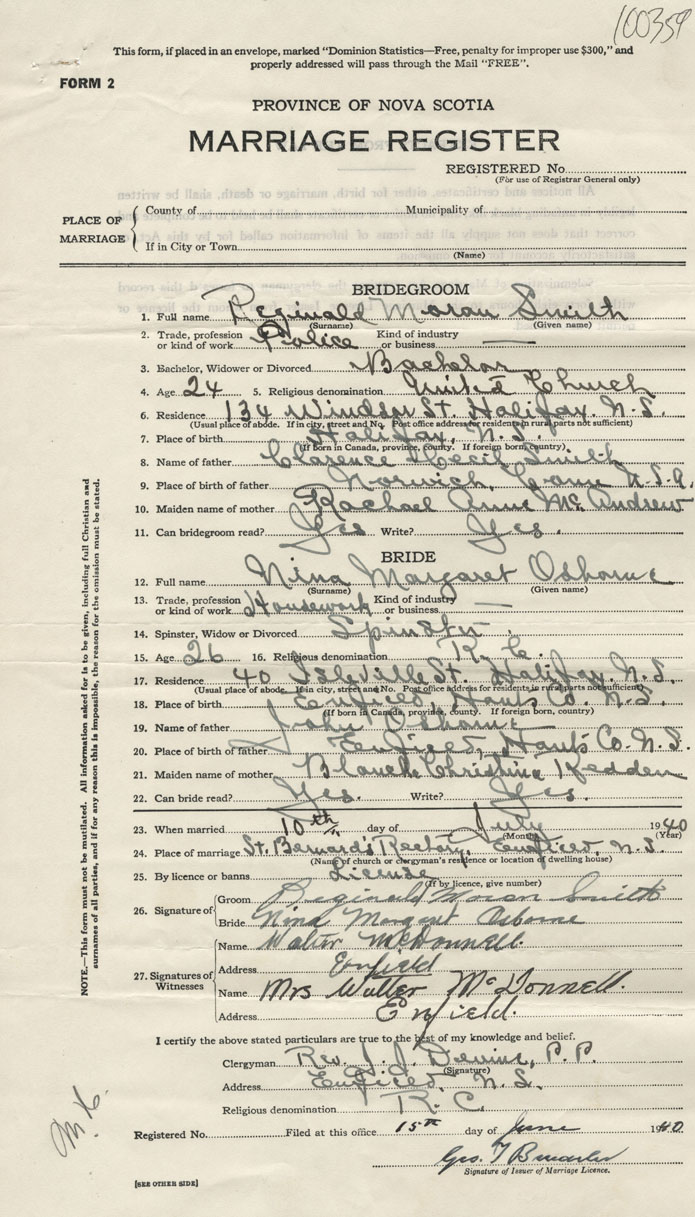 100359
This form, if placed in an envelope, marked "Dominion Statistics—Free, penalty for improper use $300," and
properly addressed will pass through the Mail "FREE".
FORM 2
PROVINCE OF NOVA SCOTIA
MARRIAGE REGISTER
REGISTERED No.
(For use of Registrar General only)
PLACE OF MARRIAGE
County of Municipality of
If in City or Town
(Name)
BRIDEGROOM
1. Full name Reginald Moran Smith
(Surname) (Given name)
2. Trade, profession or kind of work Police Kind of industry or business —
3. Bachelor, Widower or Divorced Bachelor
4. Age 24 5. Religious denomination United Church
6. Residence 134 Windsor St. Halifax, N.S.
(Usual place of abode. If in city, street and No. Post office address for residents in rural parts not sufficient)
7. Place of birth Halifax, N.S.
(If born in Canada, province, county. If foreign born, country)
8. Name of father Clarence Cecil Smith
9. Place of birth of father Norwich, Conn U.S.A.
10. Maiden name of mother Rachael Anne McAndrew
11. Can bridegroom read? Yes Write? Yes.
BRIDE
12. Full name Nina Margaret Osborne
(Surname) (Given name)
13. Trade, profession or kind of work Housework Kind of industry or business —
14. Spinster, Widow or Divorced Spinster.
15. Age 26 16. Religious denomination R.C.
17. Residence 40 Isleville St. Halifax, N.S.
(Usual place of abode. If in city, street and No. Post office address for residents in rural parts not sufficient)
18. Place of birth Enfield, Hants Co. N.S.
(If born in Canada, province, county. If foreign born, country)
19. Name of father John Osborne
20. Place of birth of father Enfield, Hants Co. N.S.
21. Maiden name of mother Blanch Christina Hedden
22. Can bride read? Yes. Write? Yes.
23. When married 10th day of July 1940
(Month) (Year)
24. Place of marriage St. Bernard's Rectory, Enfield, N.S.
(Name of church or clergyman's residence or location of dwelling house)
25. By licence or banns License
(If by licence, give number)
26. Signature of
Groom Reginald Moran Smith
Bride Nina Margaret Osborne
27. Signatures of Witnesses
Name Walter McDonnell.
Address Enfield
Name Mrs Walter McDonnell.
Address Enfield.
I certify the above stated particulars are true to the best of my knowledge and belief.
Clergyman Rev. J. J. Devine, P.P.
(Signature)
Address Enfield, N.S.
Religious denomination R.C.
Registered No. Filed at this office 15th day of June 1940
Geo. T
Signature of Issuer of Marriage Licence.
[SEE OTHER SIDE]
NOTE.—This form must not be mutilated. All information asked for is to be given, including full Christian and
surnames of all parties, and if for any reason this is impossible, the reason for the omission must be stated.